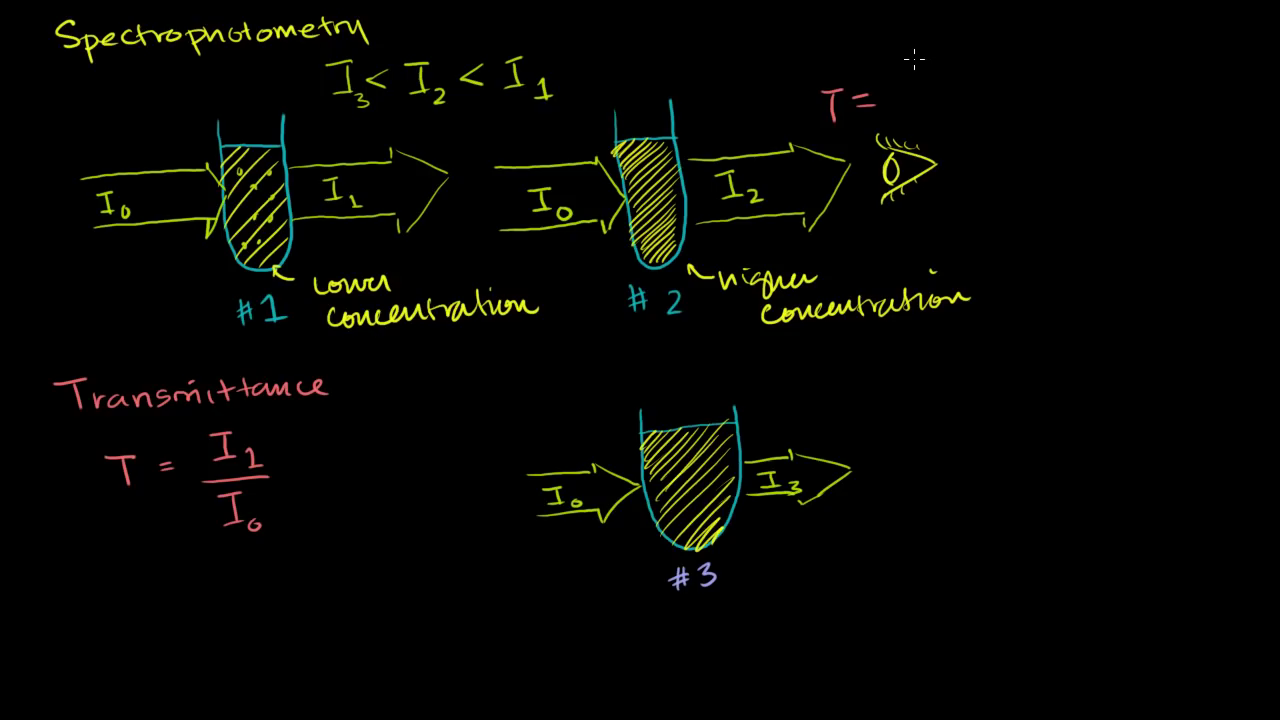 Spectrophotometry
I₃ < I₂ < I₁
T =
I₀
I₁
I₀
I₂
lower
concentration
#1
higher
concentration
#2
Transmittance
T = I₁ / I₀
I₀
I₃
#3